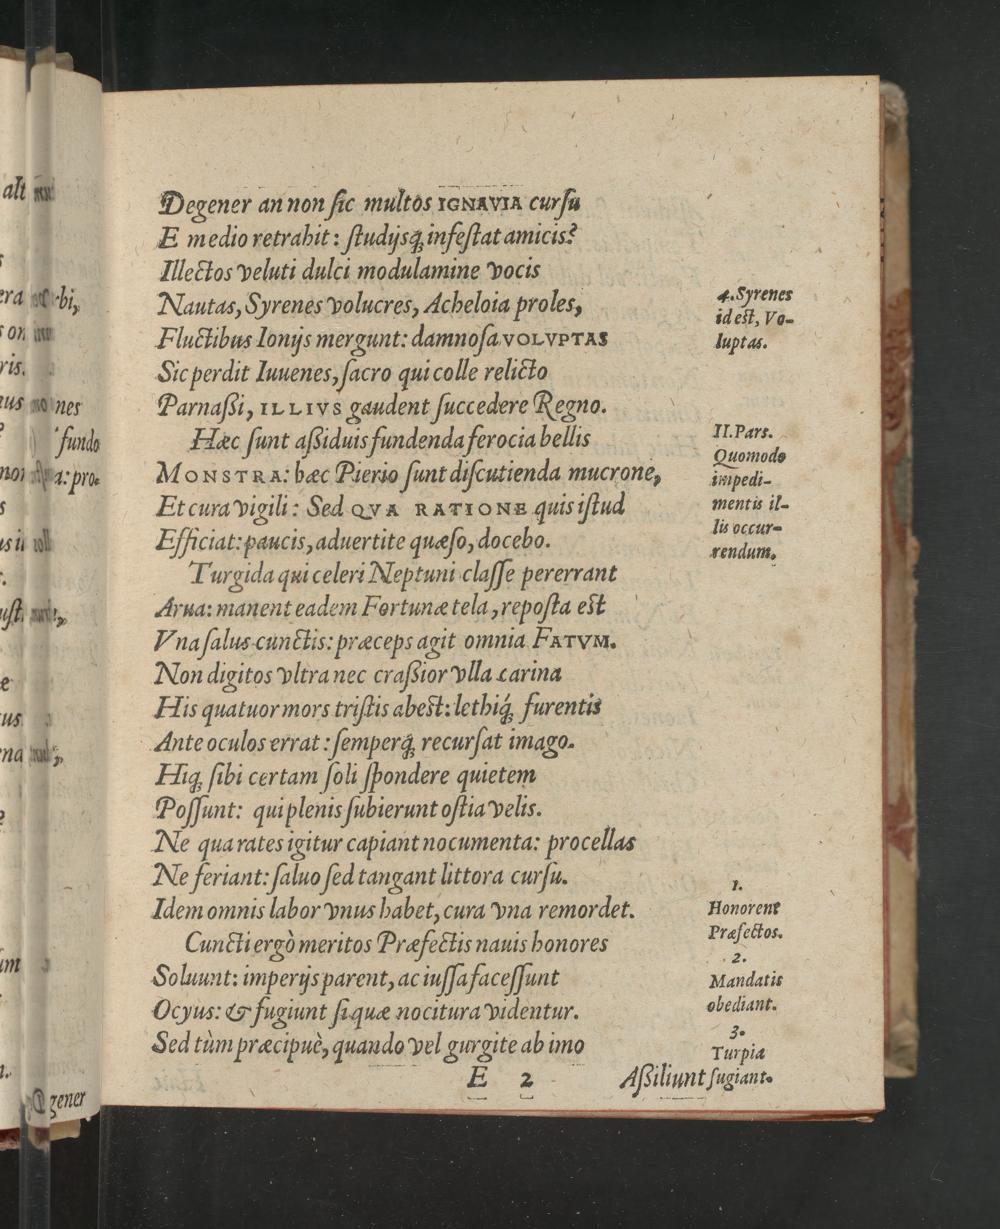 Degener an non ſic multos IGNAVIA curſu
E medio retrahit: ſtudijsq́; infeſtat amicis?
Illectos veluti dulci modulamine vocis
Nautas, Syrenes volucres, Acheloia proles,
Fluctibus Ionijs mergunt: damnoſa VOLVPTAS
Sic perdit Iuuenes, ſacro qui colle relicto
Parnaßi, ILLIVS gaudent ſuccedere Regno.
Hæc ſunt aßiduis fundenda ferocia bellis
MONSTRA: hæc Pierio ſunt diſcutienda mucrone,
Et cura vigili: Sed QVA RATIONE quis iſtud
Efficiat: paucis, aduertite quæſo, docebo.
Turgida qui celeri Neptuni claſſe pererrant
Arua: manent eadem Fortunæ tela, repoſta eſt
Vna ſalus cunctis: præceps agit omnia FATVM.
Non digitos vltra nec craßior vlla carina
His quatuor mors triſtis abeſt: lethiq́; furentis
Ante oculos errat: ſemperq́; recurſat imago.
Hiq; ſibi certam ſoli ſpondere quietem
Poſſunt: qui plenis ſubierunt oſtia velis.
Ne qua rates igitur capiant nocumenta: procellas
Ne feriant: ſaluo ſed tangant littora curſu.
Idem omnis labor vnus habet, cura vna remordet.
Cuncti ergò meritos Præfectis nauis honores
Soluunt: imperijs parent, ac iuſſa faceſſunt
Ocyus: & fugiunt ſi quæ nocitura videntur.
Sed tùm præcipuè, quando vel gurgite ab imo
E 2
Aßiliunt
4. Syrenes
id eſt, Vo-
luptas.
II. Pars.
Quomodo
impedi-
mentis il-
lis occur-
rendum.
1.
Honorent
Præfectos.
2.
Mandatis
obediant.
3.
Turpia
fugiant.